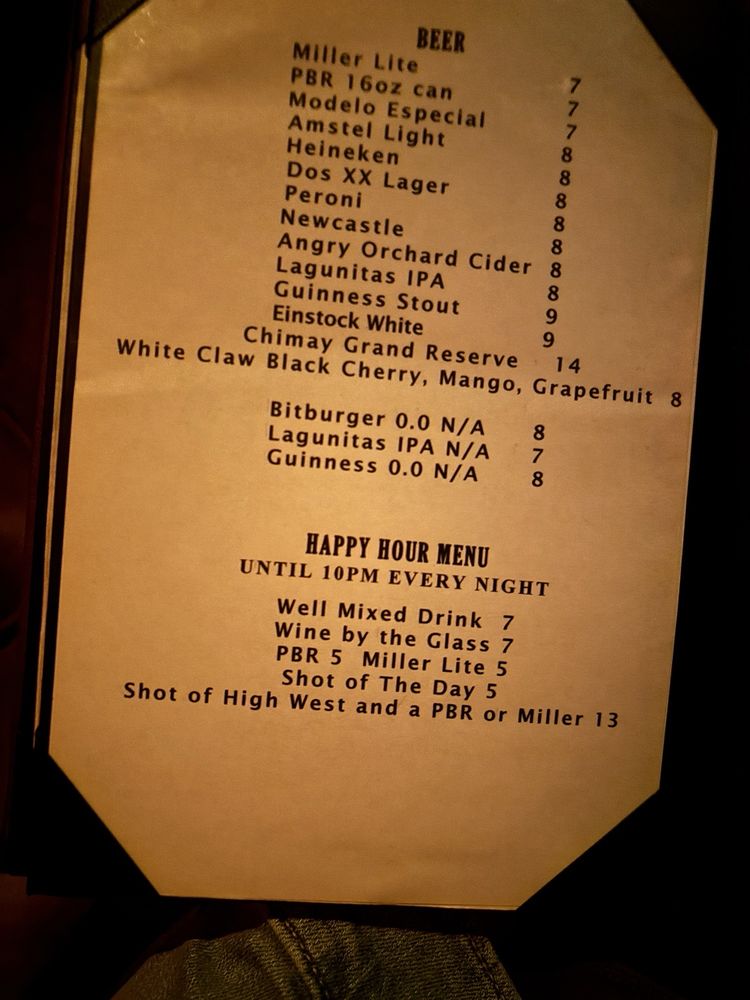 BEER
Miller Lite 7
PBR 16oz can 7
Modelo Especial 7
Amstel Light 8
Heineken 8
Dos XX Lager 8
Peroni 8
Newcastle 8
Angry Orchard Cider 8
Lagunitas IPA 8
Guinness Stout 9
Einstock White 9
Chimay Grand Reserve 14
White Claw Black Cherry, Mango, Grapefruit 8
Bitburger 0.0 N/A 8
Lagunitas IPA N/A 7
Guinness 0.0 N/A 8
HAPPY HOUR MENU
UNTIL 10PM EVERY NIGHT
Well Mixed Drink 7
Wine by the Glass 7
PBR 5 Miller Lite 5
Shot of The Day 5
Shot of High West and a PBR or Miller 13